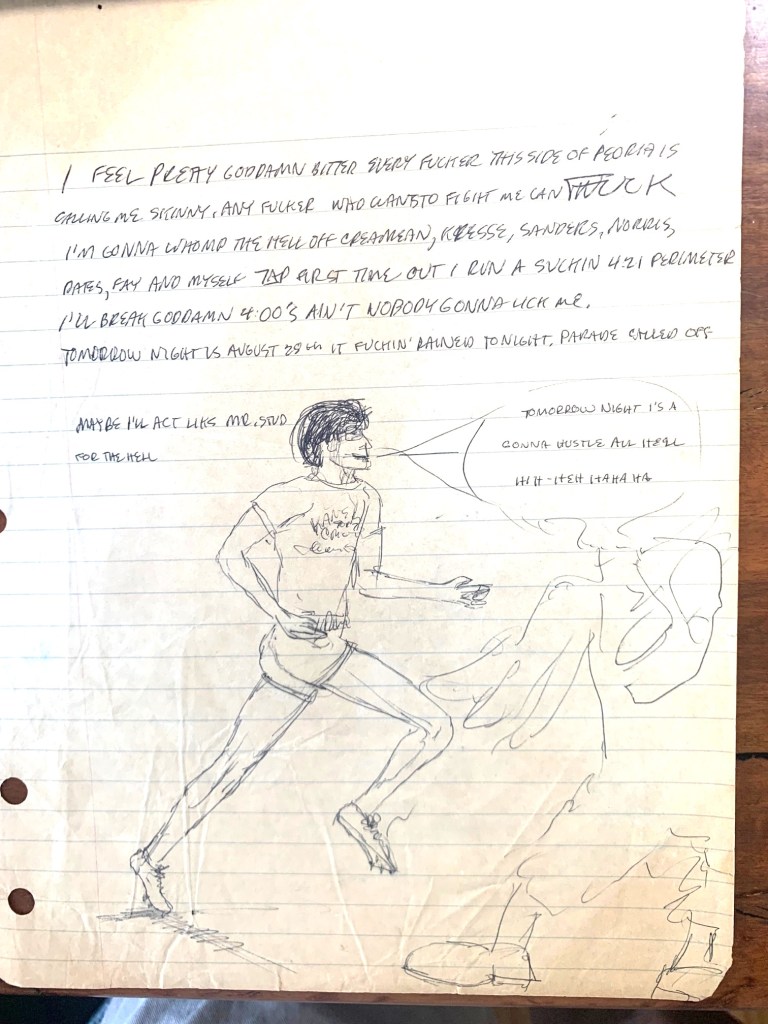 I FEEL PRETTY GODDAMN BITTER EVERY FUCKER THIS SIDE OF PEORIA IS
CALLING ME SKINNY. ANY FUCKER WHO WANTS TO FIGHT ME CAN
I'M GONNA WHOMP THE HELL OFF CREAMEAN, KRESSE, SANDERS, NORRIS,
FAY AND MYSELF FIRST TIME OUT I RUN A 4:21 PERIMETER
I'LL BREAK GODDAMN 4:00'S AIN'T NOBODY GONNA LICK ME.
TOMORROW NIGHT IS AUGUST 28th IT FUCKIN' RAINED TONIGHT. PARADE CALLED OFF
MAYBE I'LL ACT LIKE MR. STUD
FOR THE HELL
TOMORROW NIGHT I'S A
GONNA HUSTLE ALL HELL
HEH HAHA HA